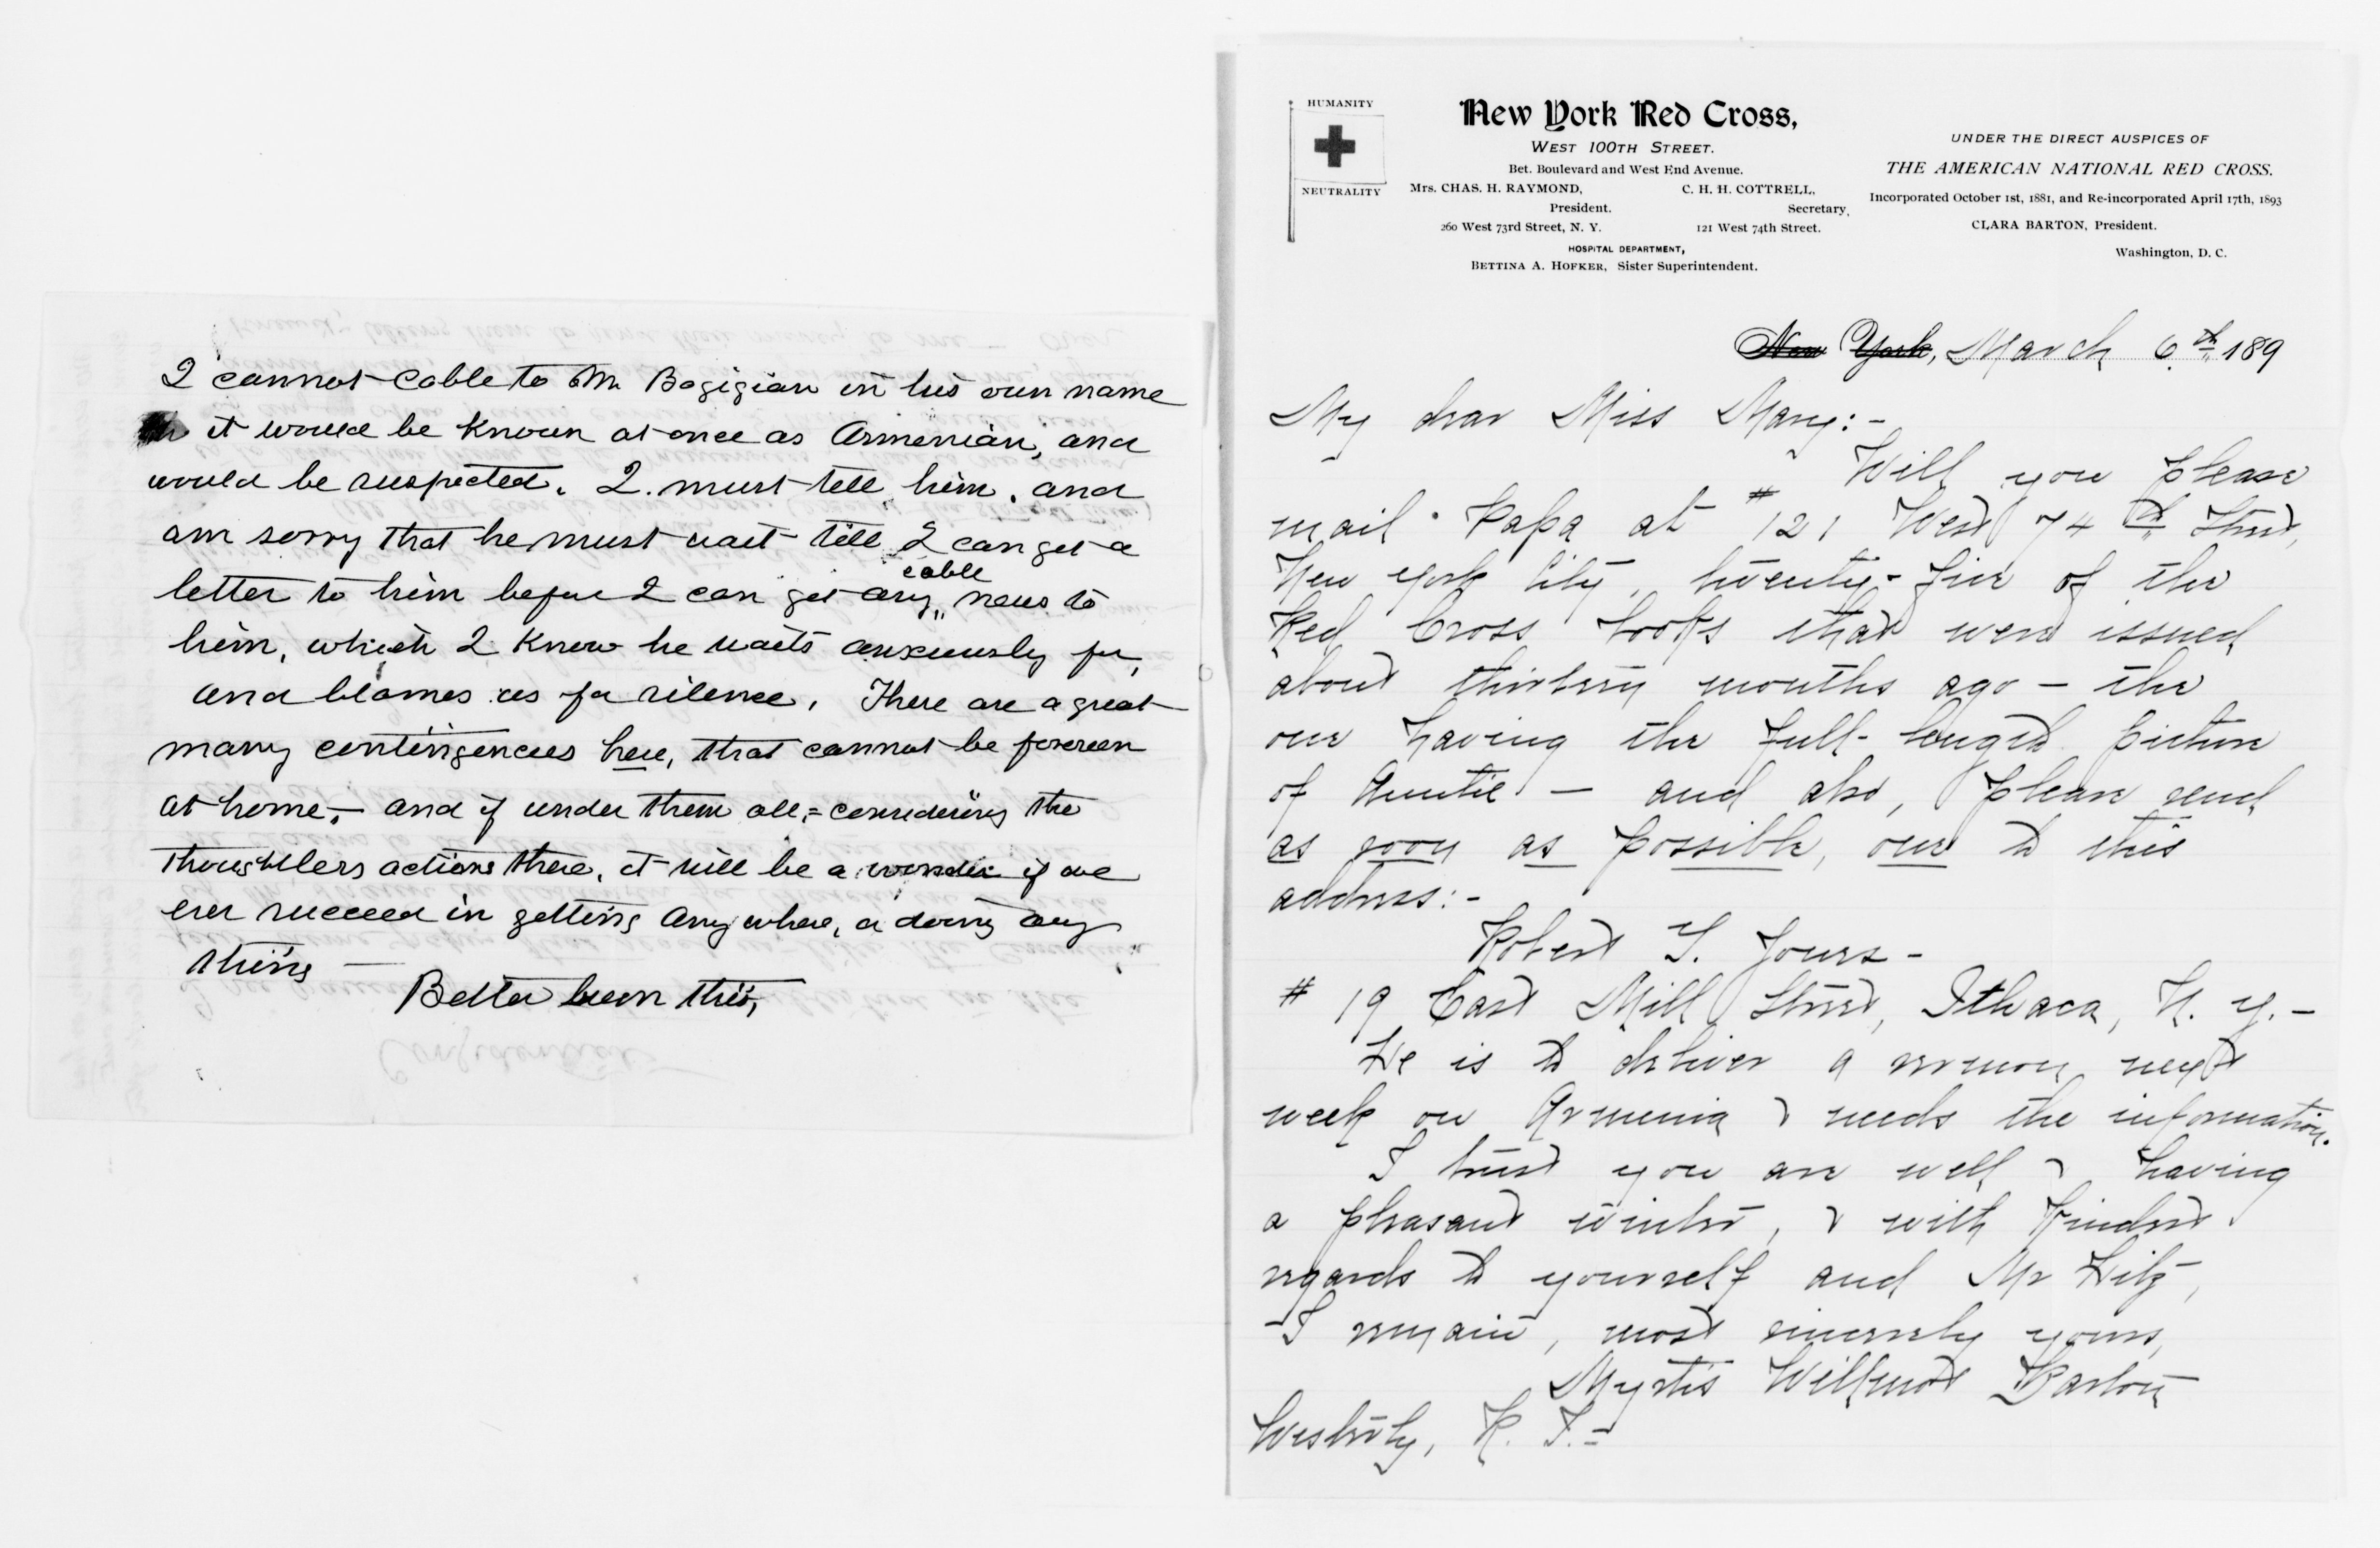 I cannot cable to Mr Bagigian in his own name
it would be known at once as Armenian, and
would be suspected. I must tell him, and
am sorry that he must wait till I can get a
letter to him before I can get any cable news to
him, which I know he waits anxiously for,
and blames us for silence. There are a great
many contingencies here, that cannot be foreseen
at home, — and if under them all, = considering the
thoughtless actions there, it will be a wonder if we
ever succeed in getting anywhere, or doing any
thing —
Better burn this,
Confidential
HUMANITY
NEUTRALITY
New York Red Cross,
WEST 100TH STREET.
Bet. Boulevard and West End Avenue.
Mrs. CHAS. H. RAYMOND,
President.
260 West 73rd Street, N. Y.
C. H. H. COTTRELL,
Secretary,
121 West 74th Street.
HOSPITAL DEPARTMENT,
BETTINA A. HOFKER, Sister Superintendent.
UNDER THE DIRECT AUSPICES OF
THE AMERICAN NATIONAL RED CROSS.
Incorporated October 1st, 1881, and Re-incorporated April 17th, 1893
CLARA BARTON, President.
Washington, D. C.
New York, March 6th 189
My dear Miss Mary:-
Will you please
mail Papa at #121 West 74th Street,
New York City, twenty-five of the
Red Cross books that were issued
about thirteen months ago — the
one having the full-length picture
of Auntie — and also, please send
as soon as possible, one to this
address:-
Robert T. Jones-
#19 East Mill Street, Ithaca, N. Y.-
He is to deliver a sermon next
week on Armenia & needs the information.
I trust you are well & having
a pleasant winter, & with kindest
regards to yourself and Mr Hitz,
I remain, most sincerely yours,
Myrtis Willmot Barton
Westerly, R. I.-